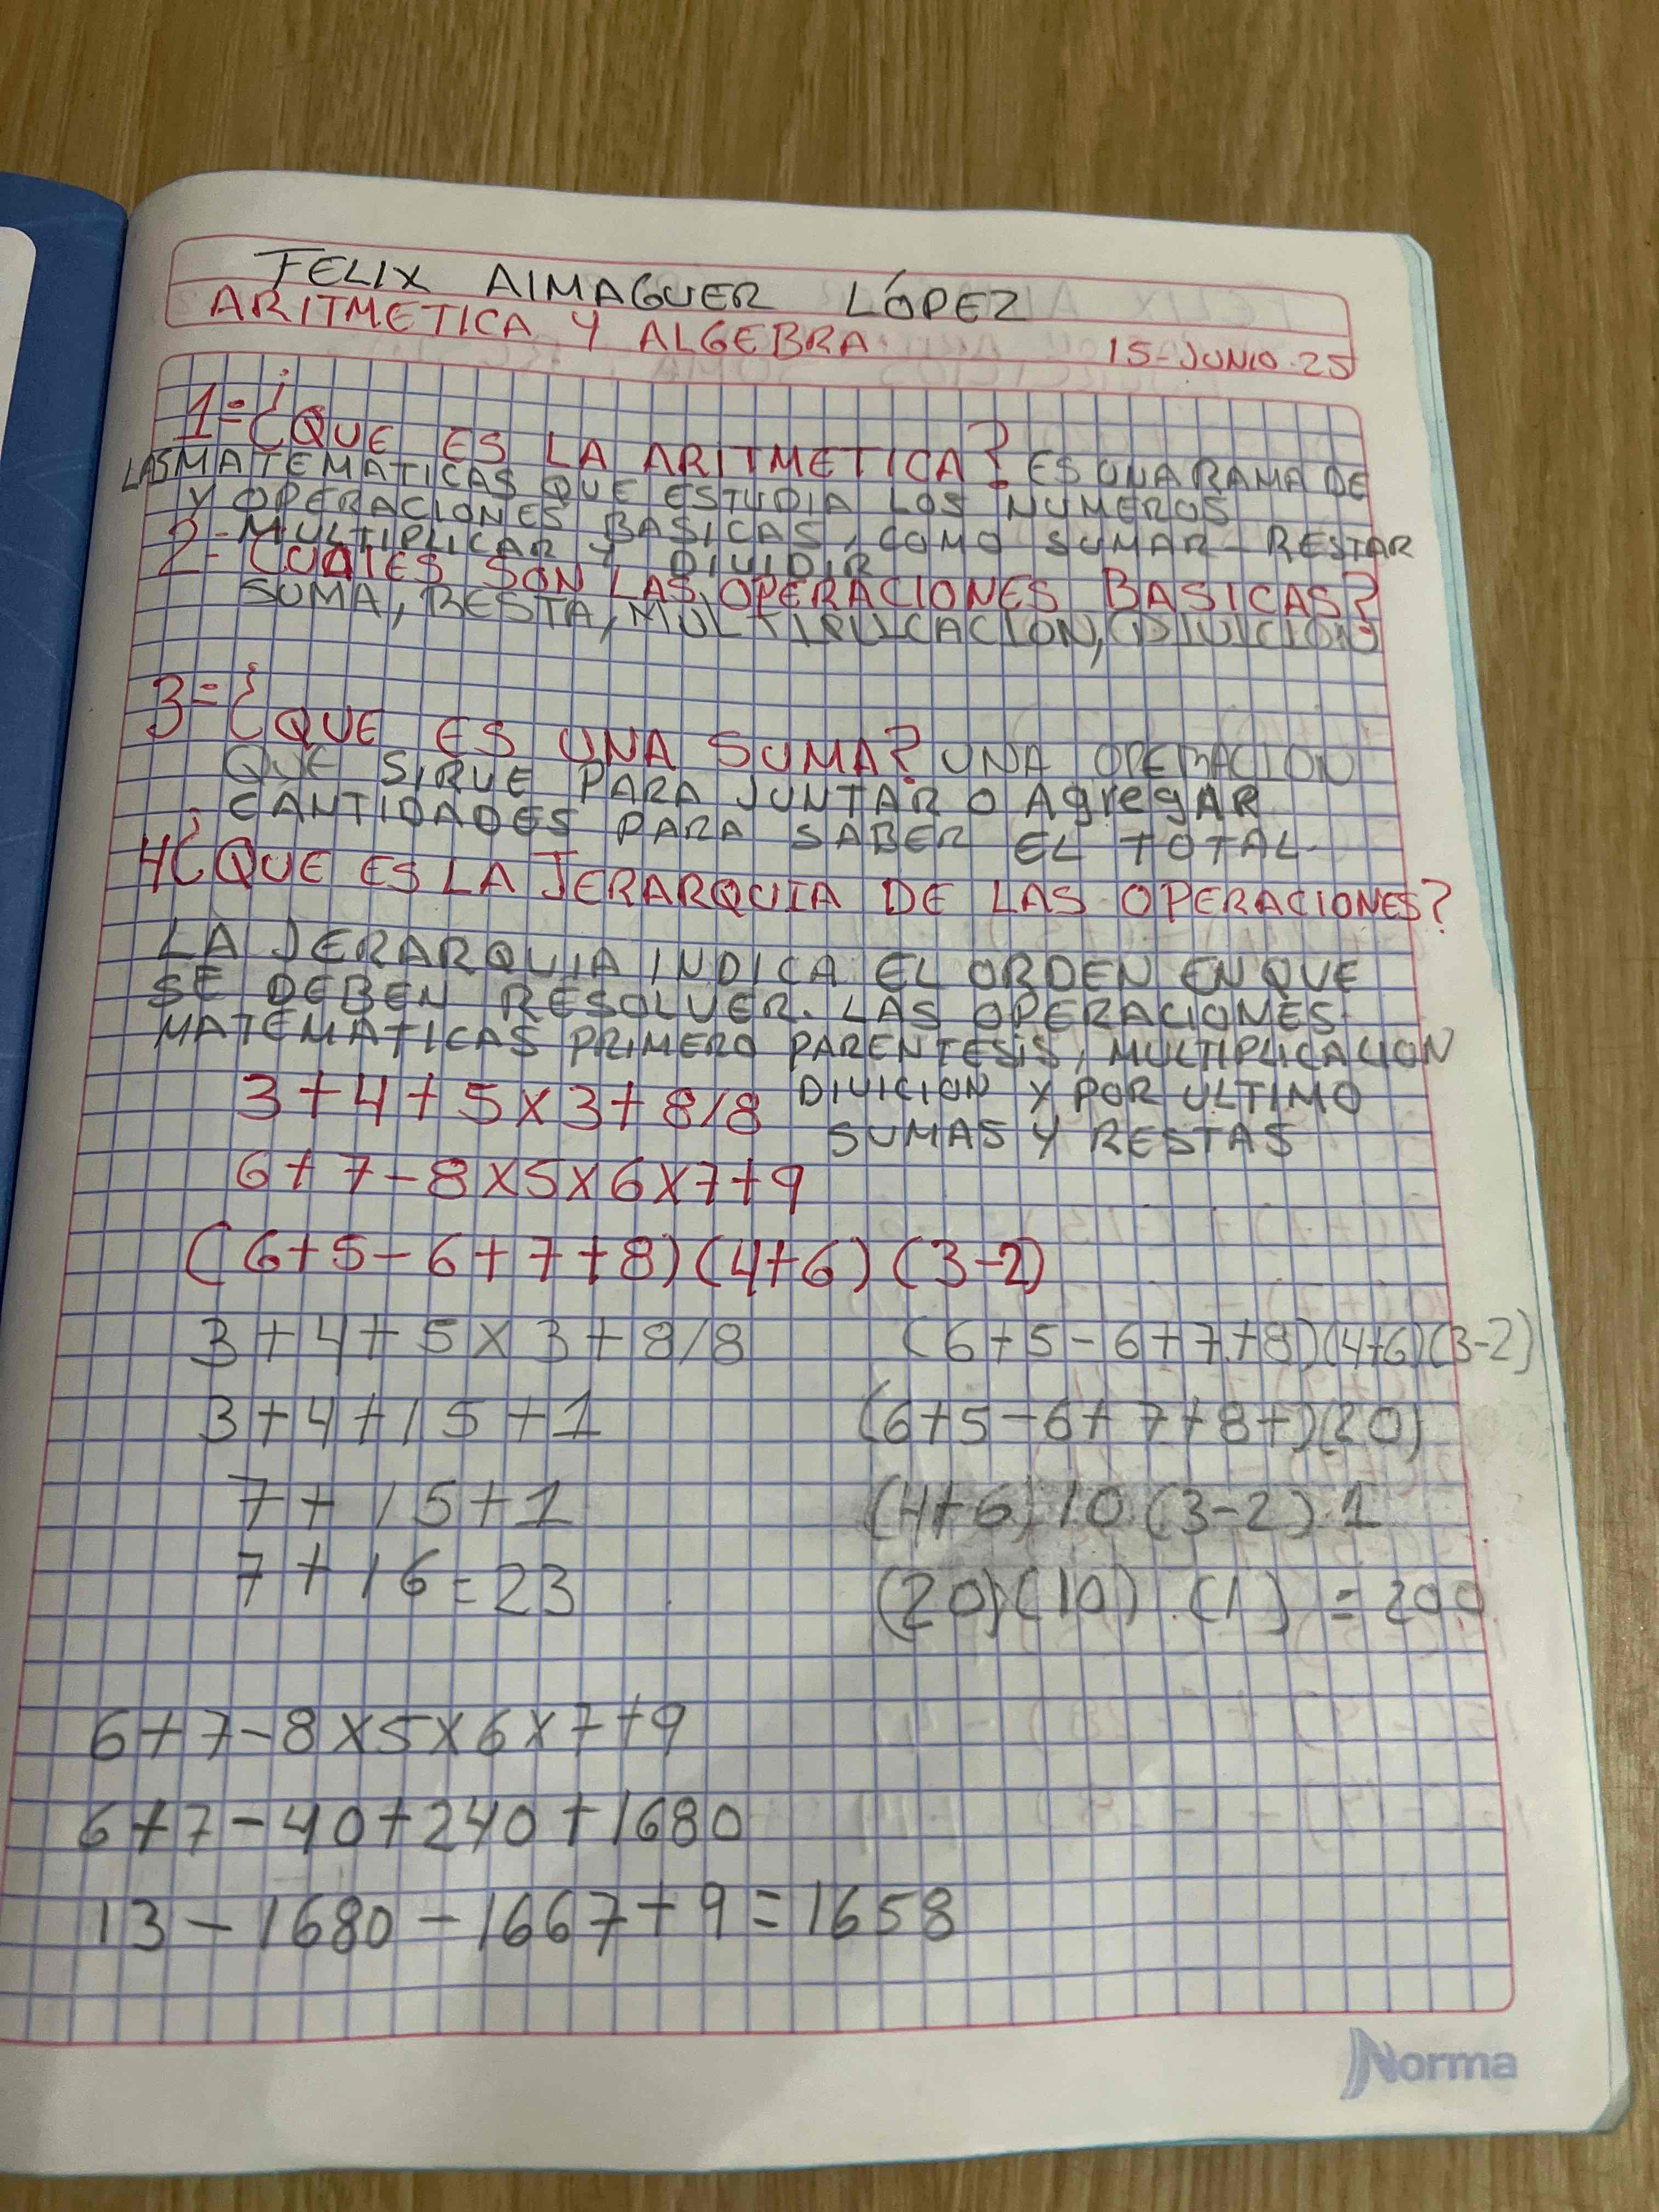 FELIX AlMAGUER LÓPEZ
ARITMETICA Y ALGEBRA 15-JUNIO-25
1=¿QUE ES LA ARITMETICA? ES UNA RAMA DE
LAS MATEMATICAS QUE ESTUDIA LOS NUMEROS
Y OPERACIONES BASICAS, COMO SUMAR-RESTAR
MULTIPLICAR Y DIVIDIR
2=CUALES SON LAS OPERACIONES BASICAS?
SUMA, RESTA, MULTIPLICACION, DIVICION
3=¿QUE ES UNA SUMA? UNA OPERACION
QUE SIRVE PARA JUNTAR O AgregAR
CANTIDADES PARA SABER EL TOTAL.
4¿QUE ES LA JERARQUIA DE LAS OPERACIONES?
LA JERARQUIA INDICA EL ORDEN EN QUE
SE DEBEN RESOLVER. LAS OPERACIONES
MATEMATICAS PRIMERO PARENTESIS, MULTIPLICACION
DIVICION Y POR ULTIMO
SUMAS Y RESTAS
3+4+5x3+8/8
6+7-8x5x6x7+9
(6+5-6+7+8)(4+6)(3-2)
3+4+5x3+8/8
3+4+15+1
7+15+1
7+16=23
(6+5-6+7+8)(4+6)(3-2)
(6+5-6+7+8+)(20)
(4+6)10.(3-2).1
(20)(10).(1)=200
6+7-8x5x6x7+9
6+7-40+240+1680
13-1680-1667+9=1658
Norma